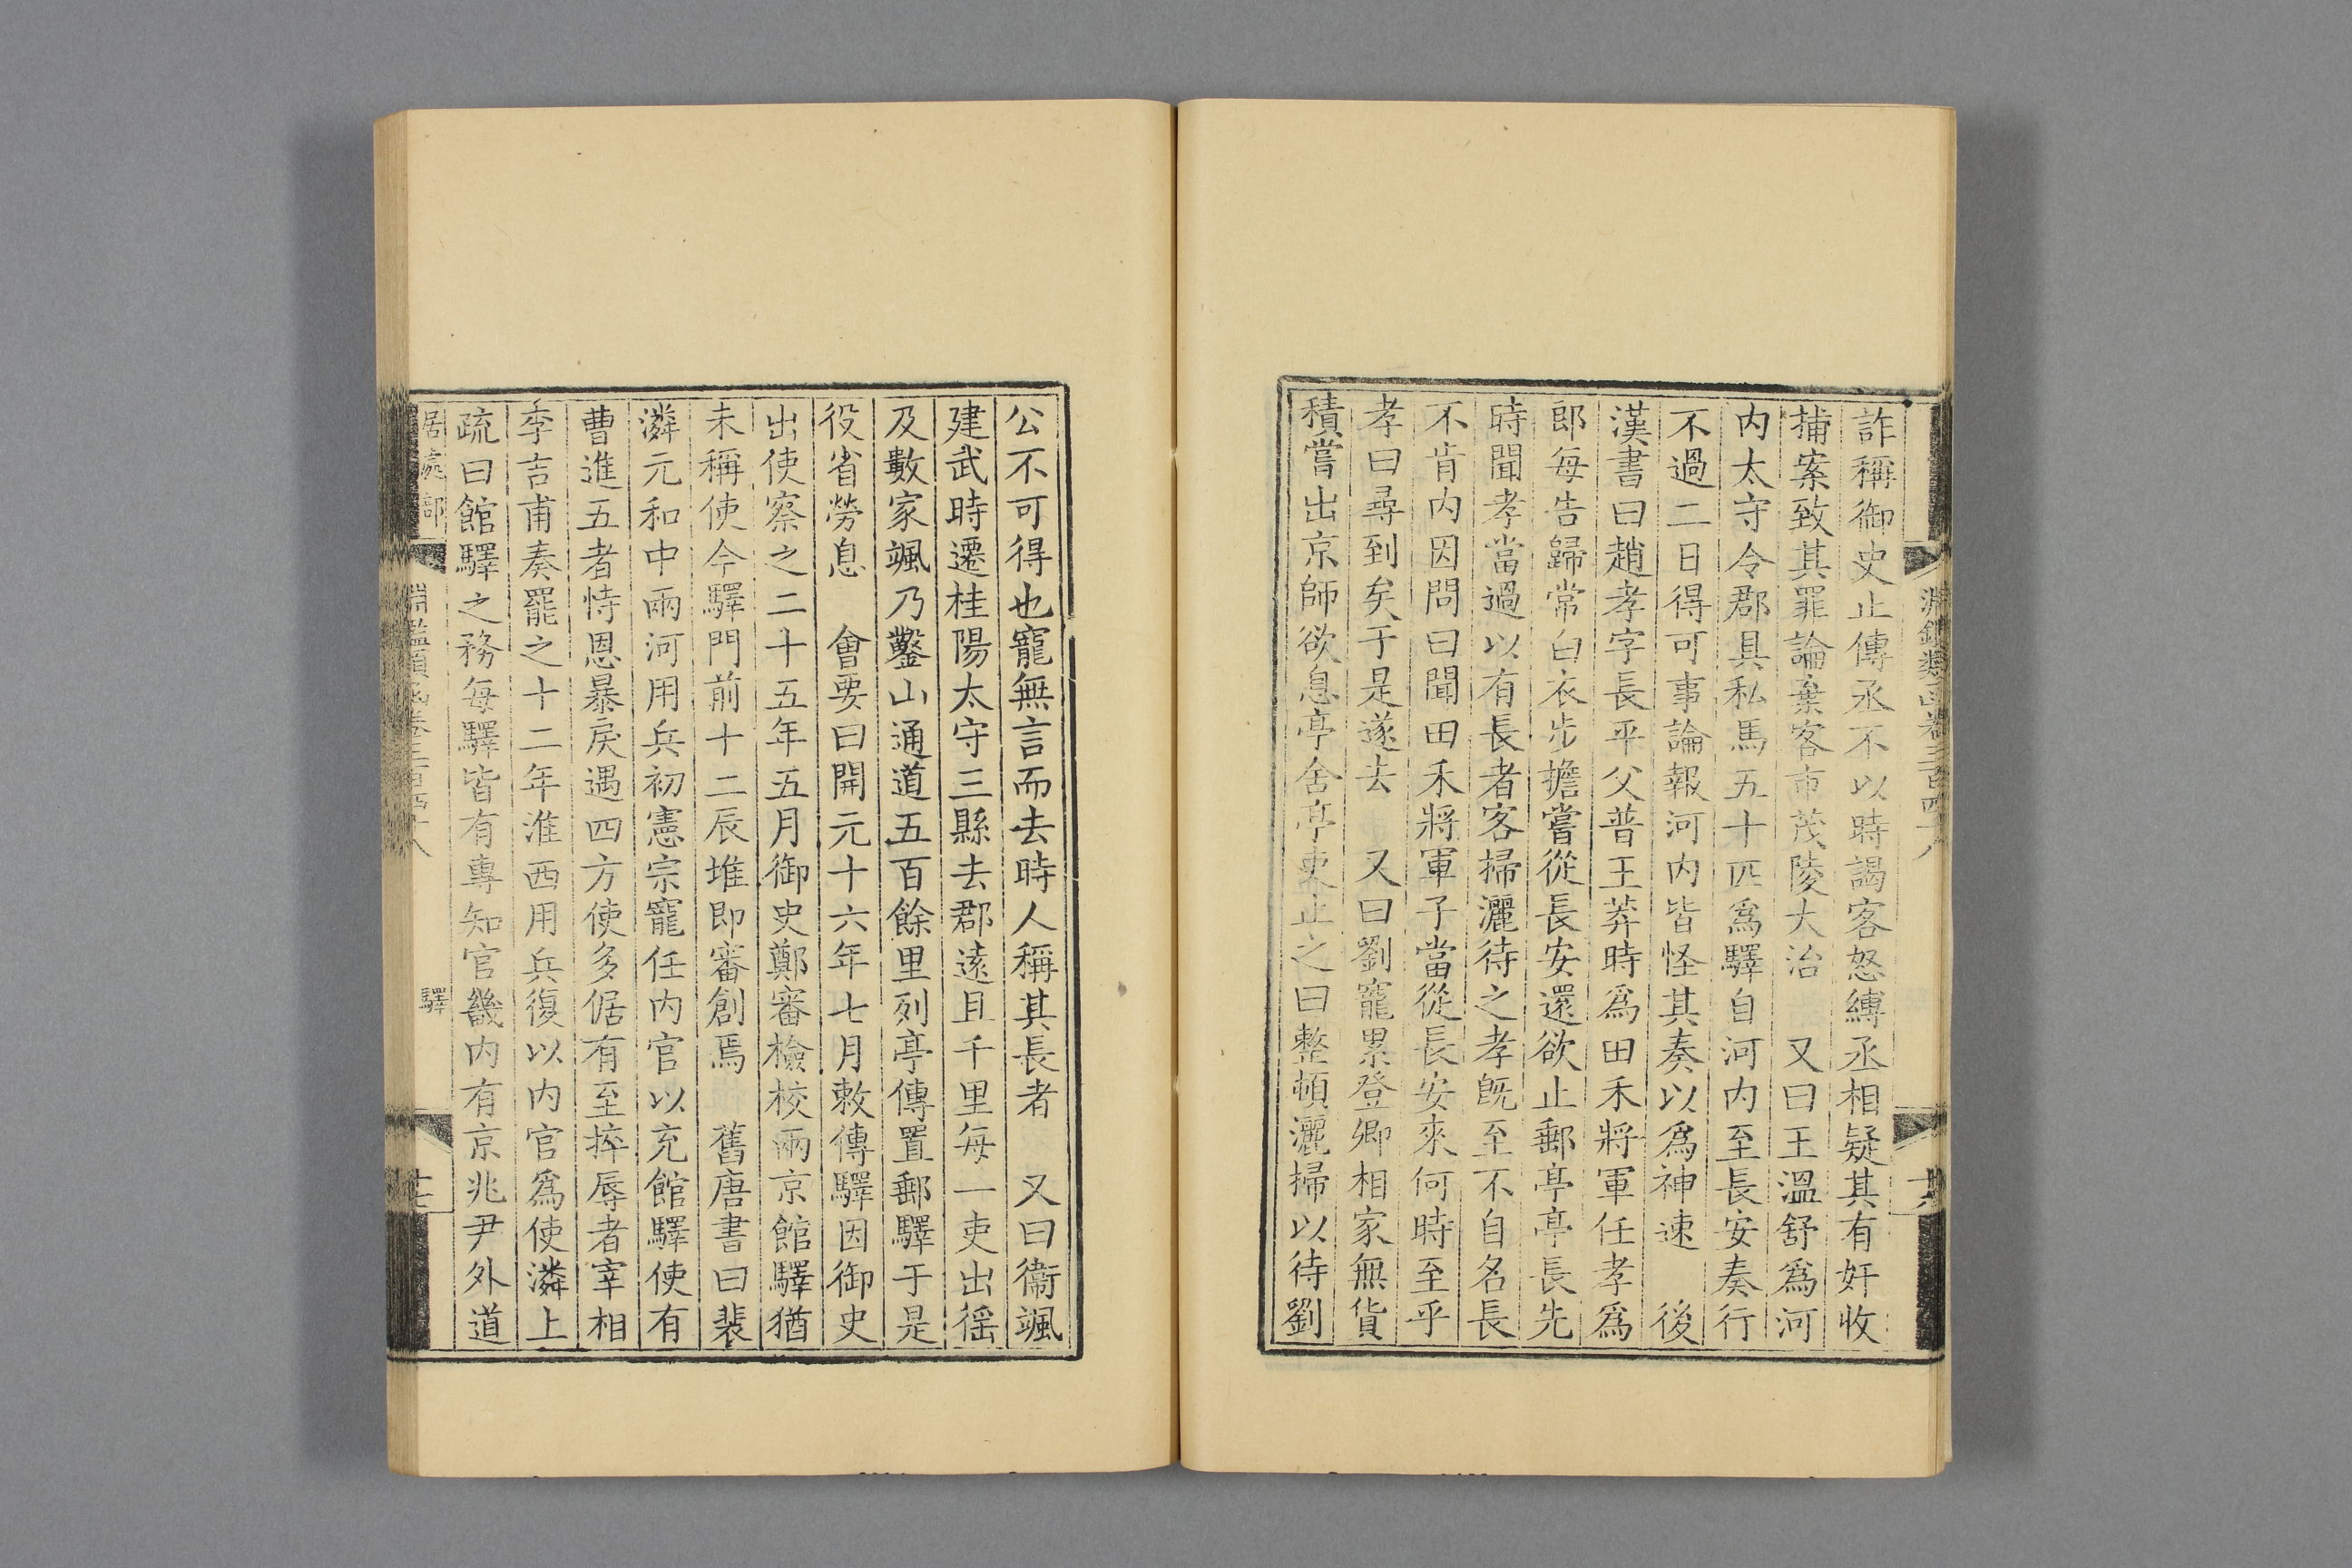 詐稱御史止傳丞不以時謁客怒縛丞相疑其有奸收
捕案致其罪論棄客市茂陵大治　又曰王溫舒爲河
内太守令郡具私馬五十匹爲驛自河内至長安奏行
不過二日得可事論報河内皆怪其奏以爲神速　後
漢書曰趙孝字長平父普王莽時爲田禾將軍任孝爲
郎每告歸常白衣步擔嘗從長安還欲止郵亭亭長先
時聞孝當過以有長者客掃灑待之孝旣至不自名長
不肯内因問曰聞田禾將軍子當從長安來何時至乎
孝曰尋到矣于是遂去　又曰劉寵累登卿相家無貨
積嘗出京師欲息亭舍亭吏止之曰整頓灑掃以待劉
公不可得也寵無言而去時人稱其長者　又曰衞颯
建武時遷桂陽太守三縣去郡遠且千里每一吏出徭
及數家颯乃鑿山通道五百餘里列亭傳置郵驛于是
役省勞息　會要曰開元十六年七月敕傳驛因御史
出使察之二十五年五月御史鄭審檢校兩京館驛猶
未稱使今驛門前十二辰堆即審創焉　舊唐書曰裴
潾元和中兩河用兵初憲宗寵任内官以充館驛使有
曹進五者恃恩暴戾遇四方使多倨有至捽辱者宰相
李吉甫奏罷之十二年淮西用兵復以内官爲使潾上
疏曰館驛之務每驛皆有專知官畿内有京兆尹外道
居處部
驛